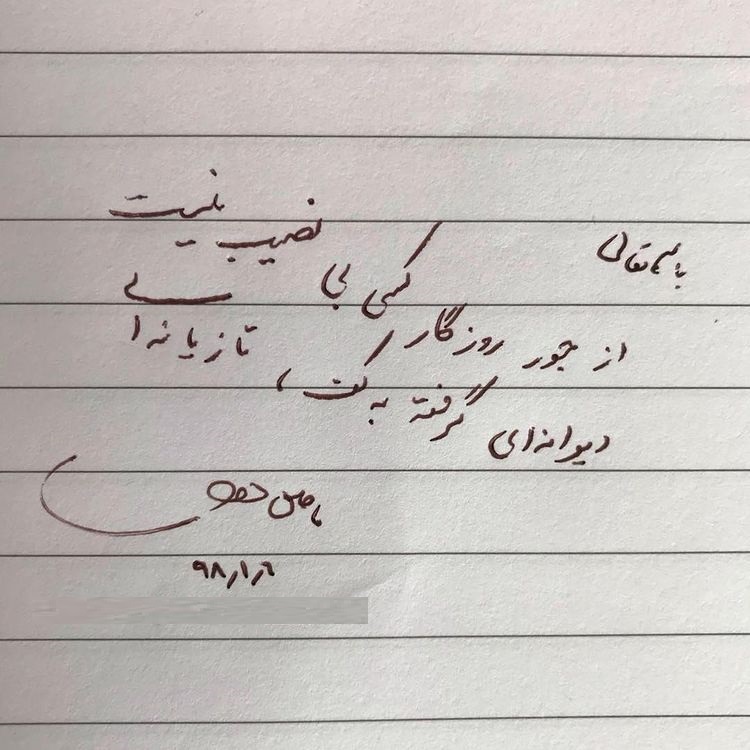 باسمه تعالی
از جور روزگار کسی بی نصیب نیست
دیوانه‌ای گرفته به کف، تازیانه‌ای
۹۸/۱/۶